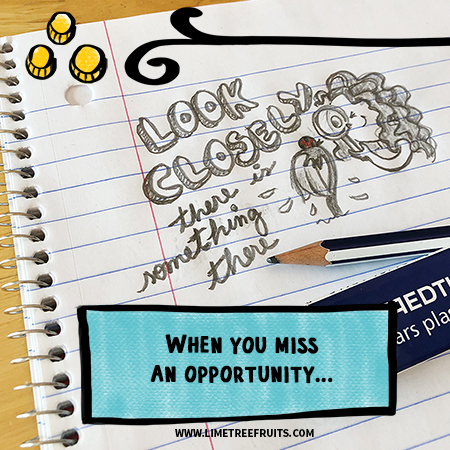 LOOK
CLOSELY
there is
something
there
AEDTL
ars pla
WHEN YOU MISS
AN OPPORTUNITY...
WWW.LIMETREEFRUITS.COM